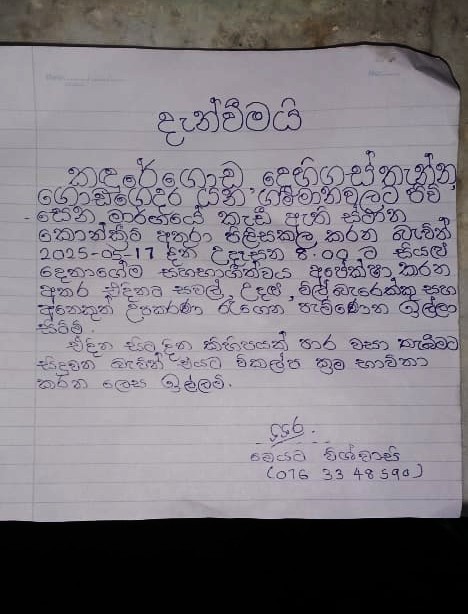 දැන්වීමයි
කඳුරේගොඩ දෙහිගස්තැන්න,
ගොඩගෙදර යන ගම්මානවලට පිවි
සෙන මාර්ගයේ කැඩී ඇති ස්ථාන
කොන්ක්‍රීට් අතුරා පිළිසකර කරන බැවින්
2025-05-17 දින උදෑසන 8.00 ට සියලු
දෙනාගේම සහභාගීත්වය අපේක්ෂා කරන
අතර එදිනට සවල්, උදළු, විල්බැරෙක්ක සහ
අනෙකුත් උපකරණ රැගෙන පැමිණෙන ඉල්ලා
සිටිමි.
එදින සිට දින කිහිපයක් පාර වසා තැබීමට
සිදුවන බැවින් එයට විකල්ප ක්‍රම භාවිතා
කරන ලෙස ඉල්ලමි.
මෙයට විශ්වාසී
(076 33 48590)